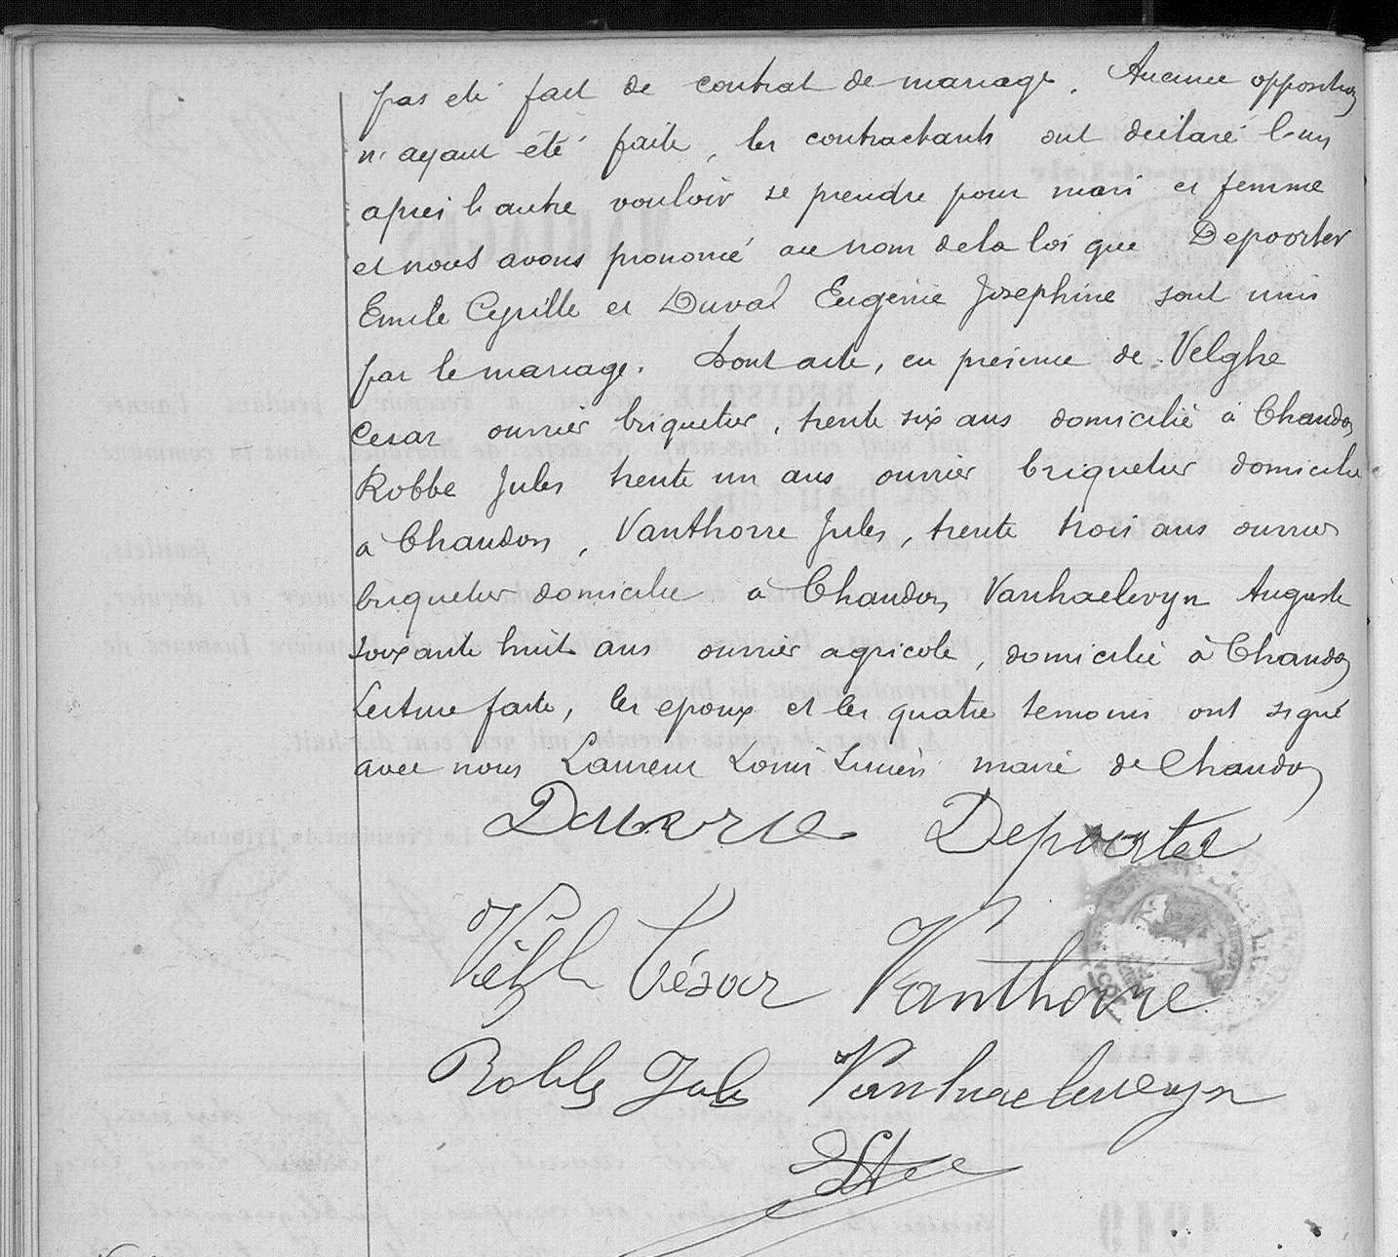 pas été fait de contrat de mariage. Aucune opposition
n'ayant été faite, les contractants ont déclaré l'un
après l'autre vouloir se prendre pour mari et femme
et nous avons prononcé au nom de la loi que Depoorter
Emile Cyrille et Duval Eugénie Josephine sont unis
par le mariage. Dont acte, en présence de Velghe
Cesar ouvrier briquetier, trente six ans domicilié à Chaudon
Robbe Jules trente un ans ouvrier briquetier domicilié
à Chaudon, Vanthorre Jules, trente trois ans ouvrier
briquetier domicilié à Chaudon, Vanhaelevyn Auguste
soixante huit ans ouvrier agricole, domicilié à Chaudon
Lecture faite, les epoux et les quatre temoins ont signé
avec nous Laureur Louis Lucien maire de Chaudon
Depoorter
César Vanthorre
Robbe Jules Vanhaelewyn